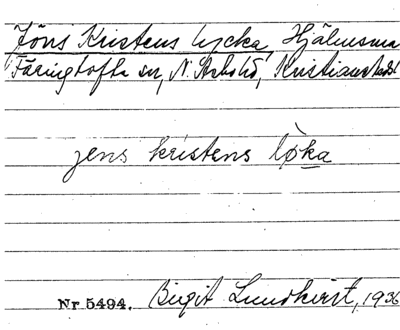 Jöns Kristens lycka, Hjälmsma
Färingtofta sn, N. Åsbo hd, Kristianstads l
jens kristens løka
Nr 5494. Birgit Lundkvist, 1936